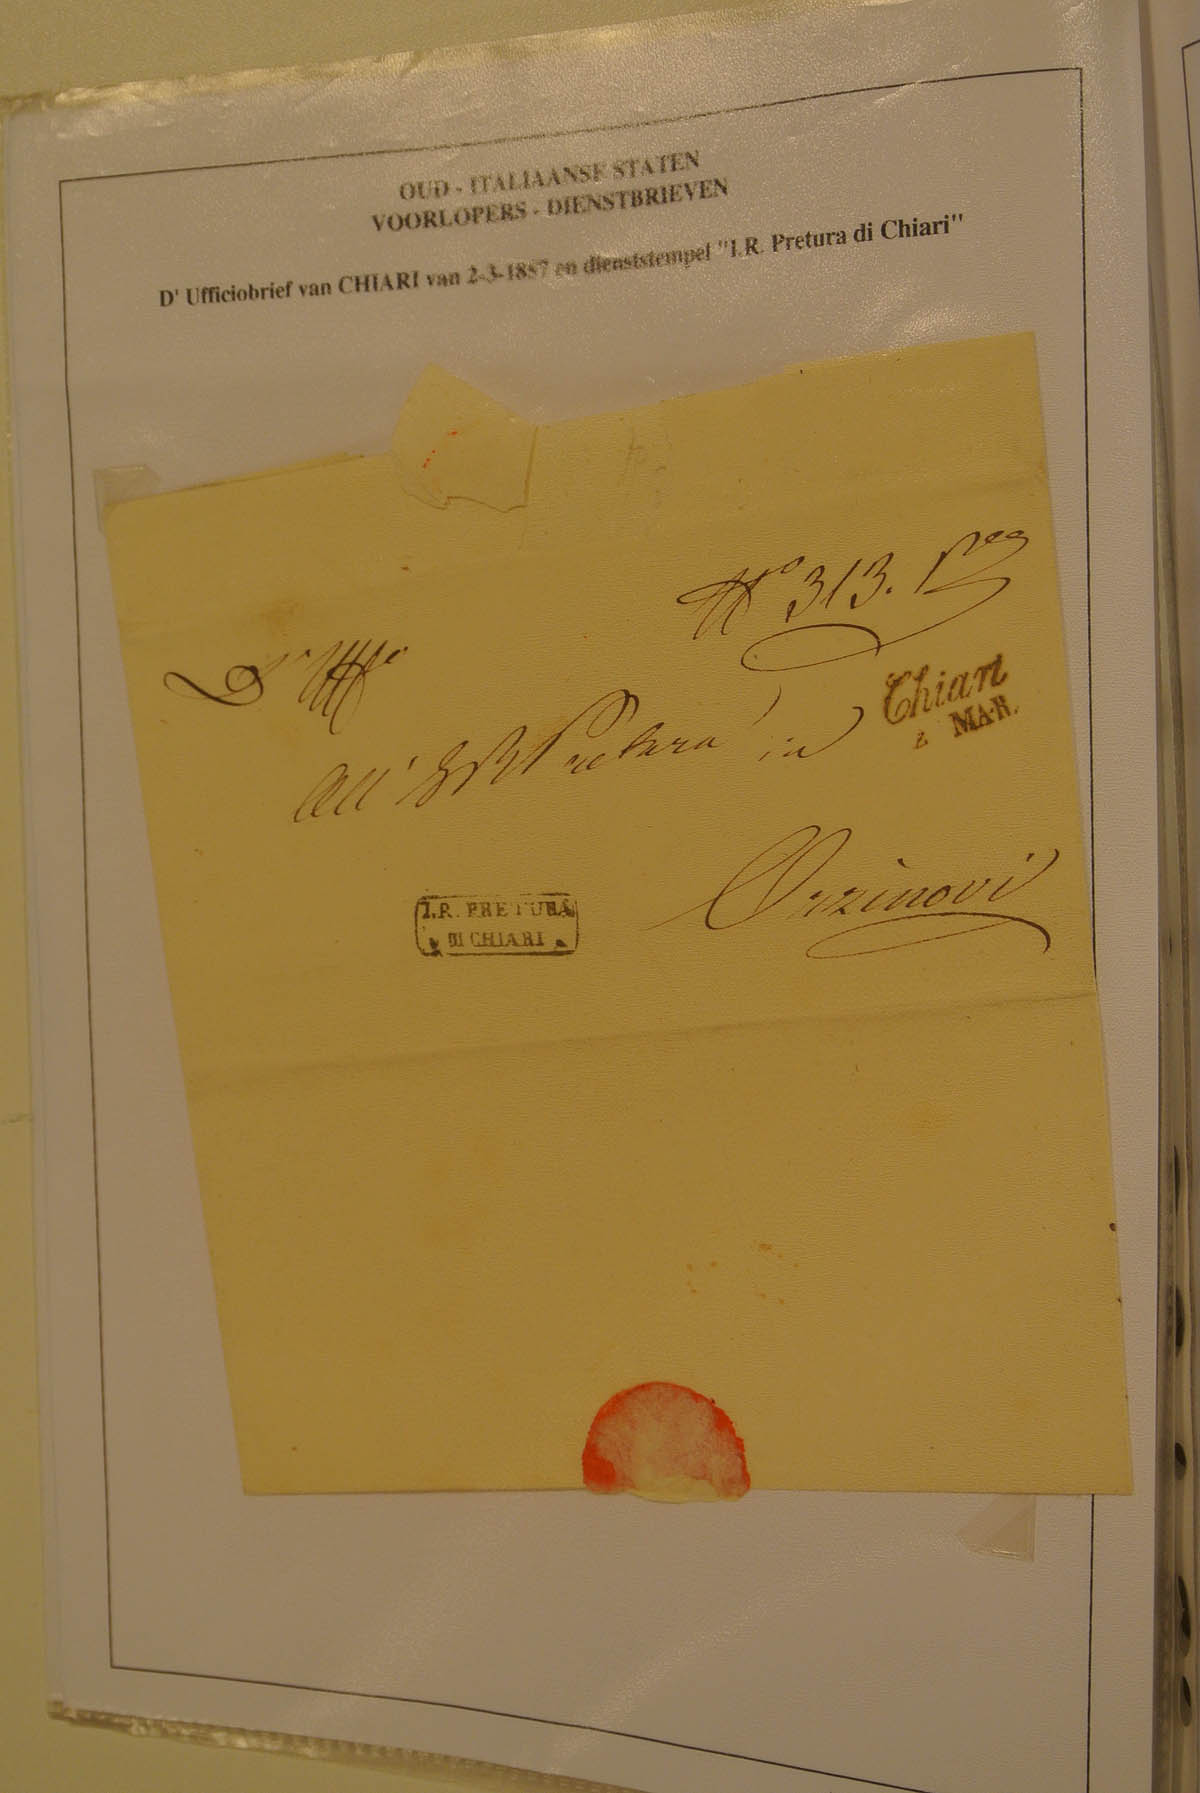 OUD - ITALIAANSE STATEN
VOORLOPERS - DIENSTBRIEVEN
D' Ufficiobrief van CHIARI van 2-3-1857 en dienststempel "I.R. Pretura di Chiari"
N° 313.
D' Uff°
Chiari
2 MAR.
All' I R Pretura in
Orzinovi
I.R. PRETURA
DI CHIARI